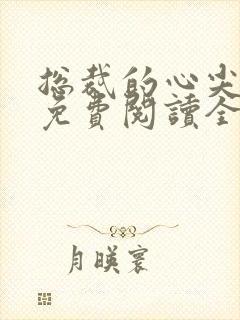 总裁的心尖
免費閱讀全
月暎寰